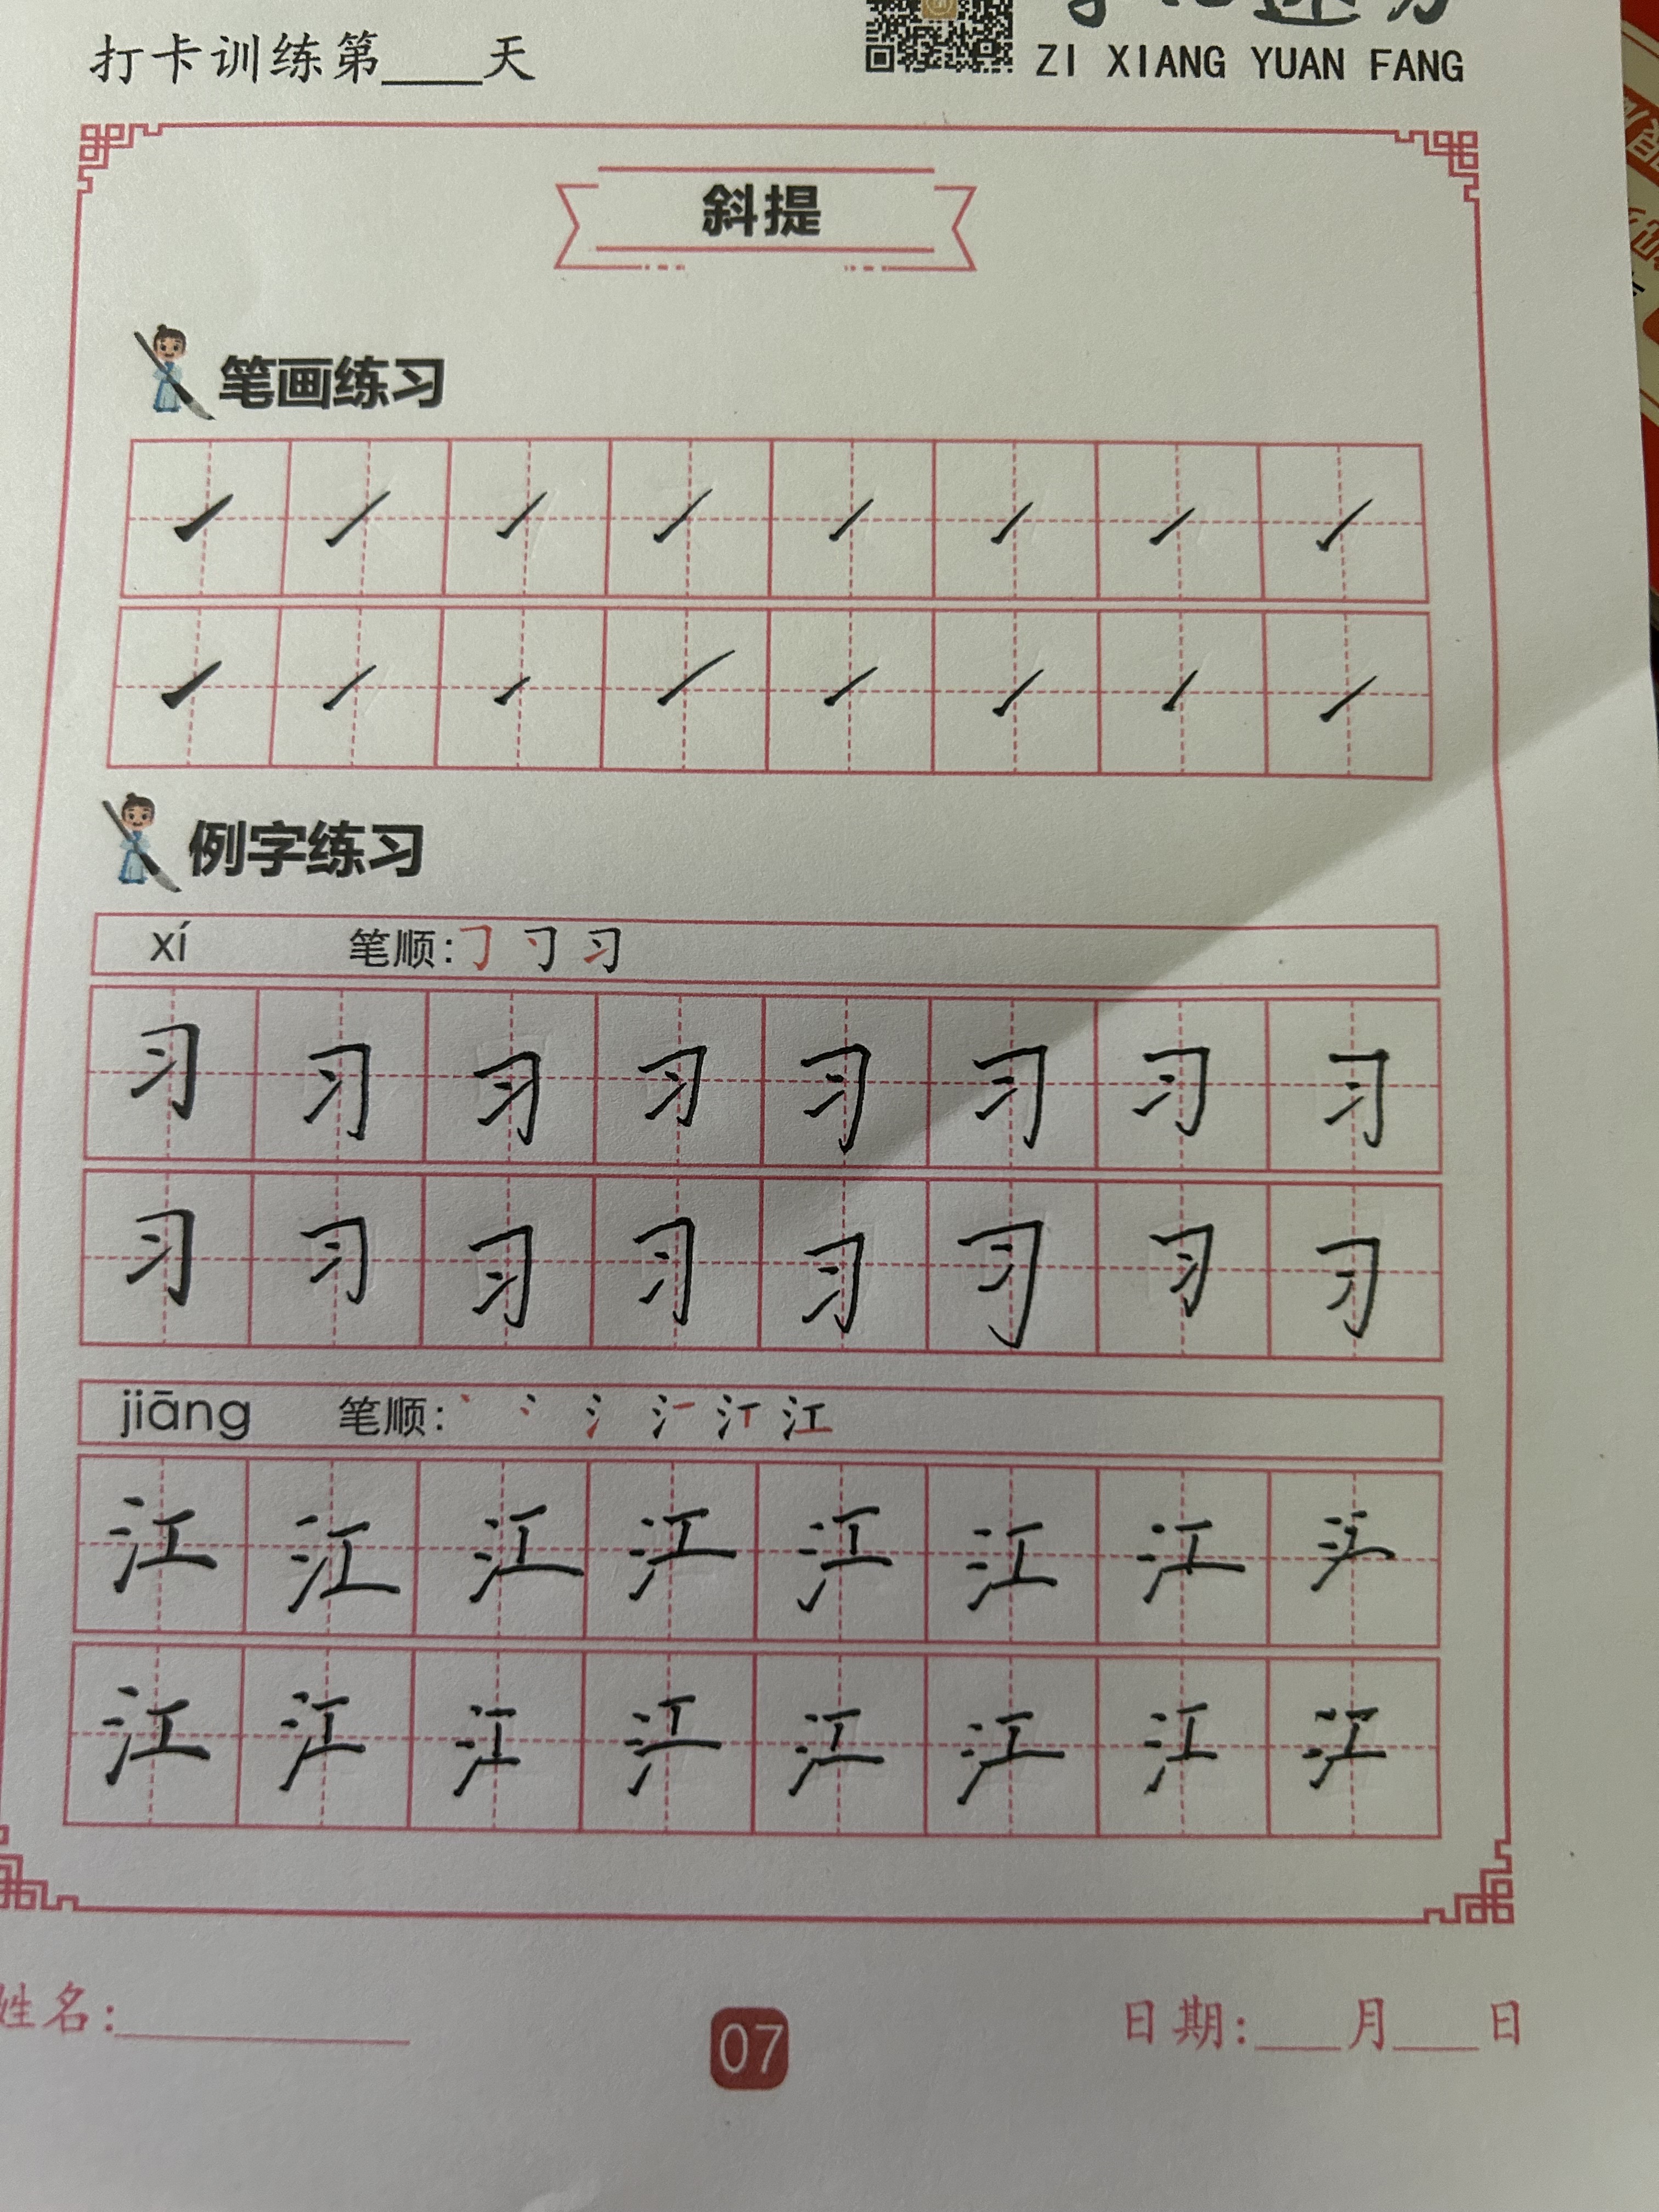 打卡训练第____天
ZI XIANG YUAN FANG
斜提
笔画练习
例字练习
xí 笔顺:
习 习 习 习 习 习 习 习
习 习 习 习 习 习 习 习
jiāng 笔顺: 江
江 江 江 江 江 江 江 江
江 江 江 江 江 江 江 江
姓名:__________ 07 日期:___月___日